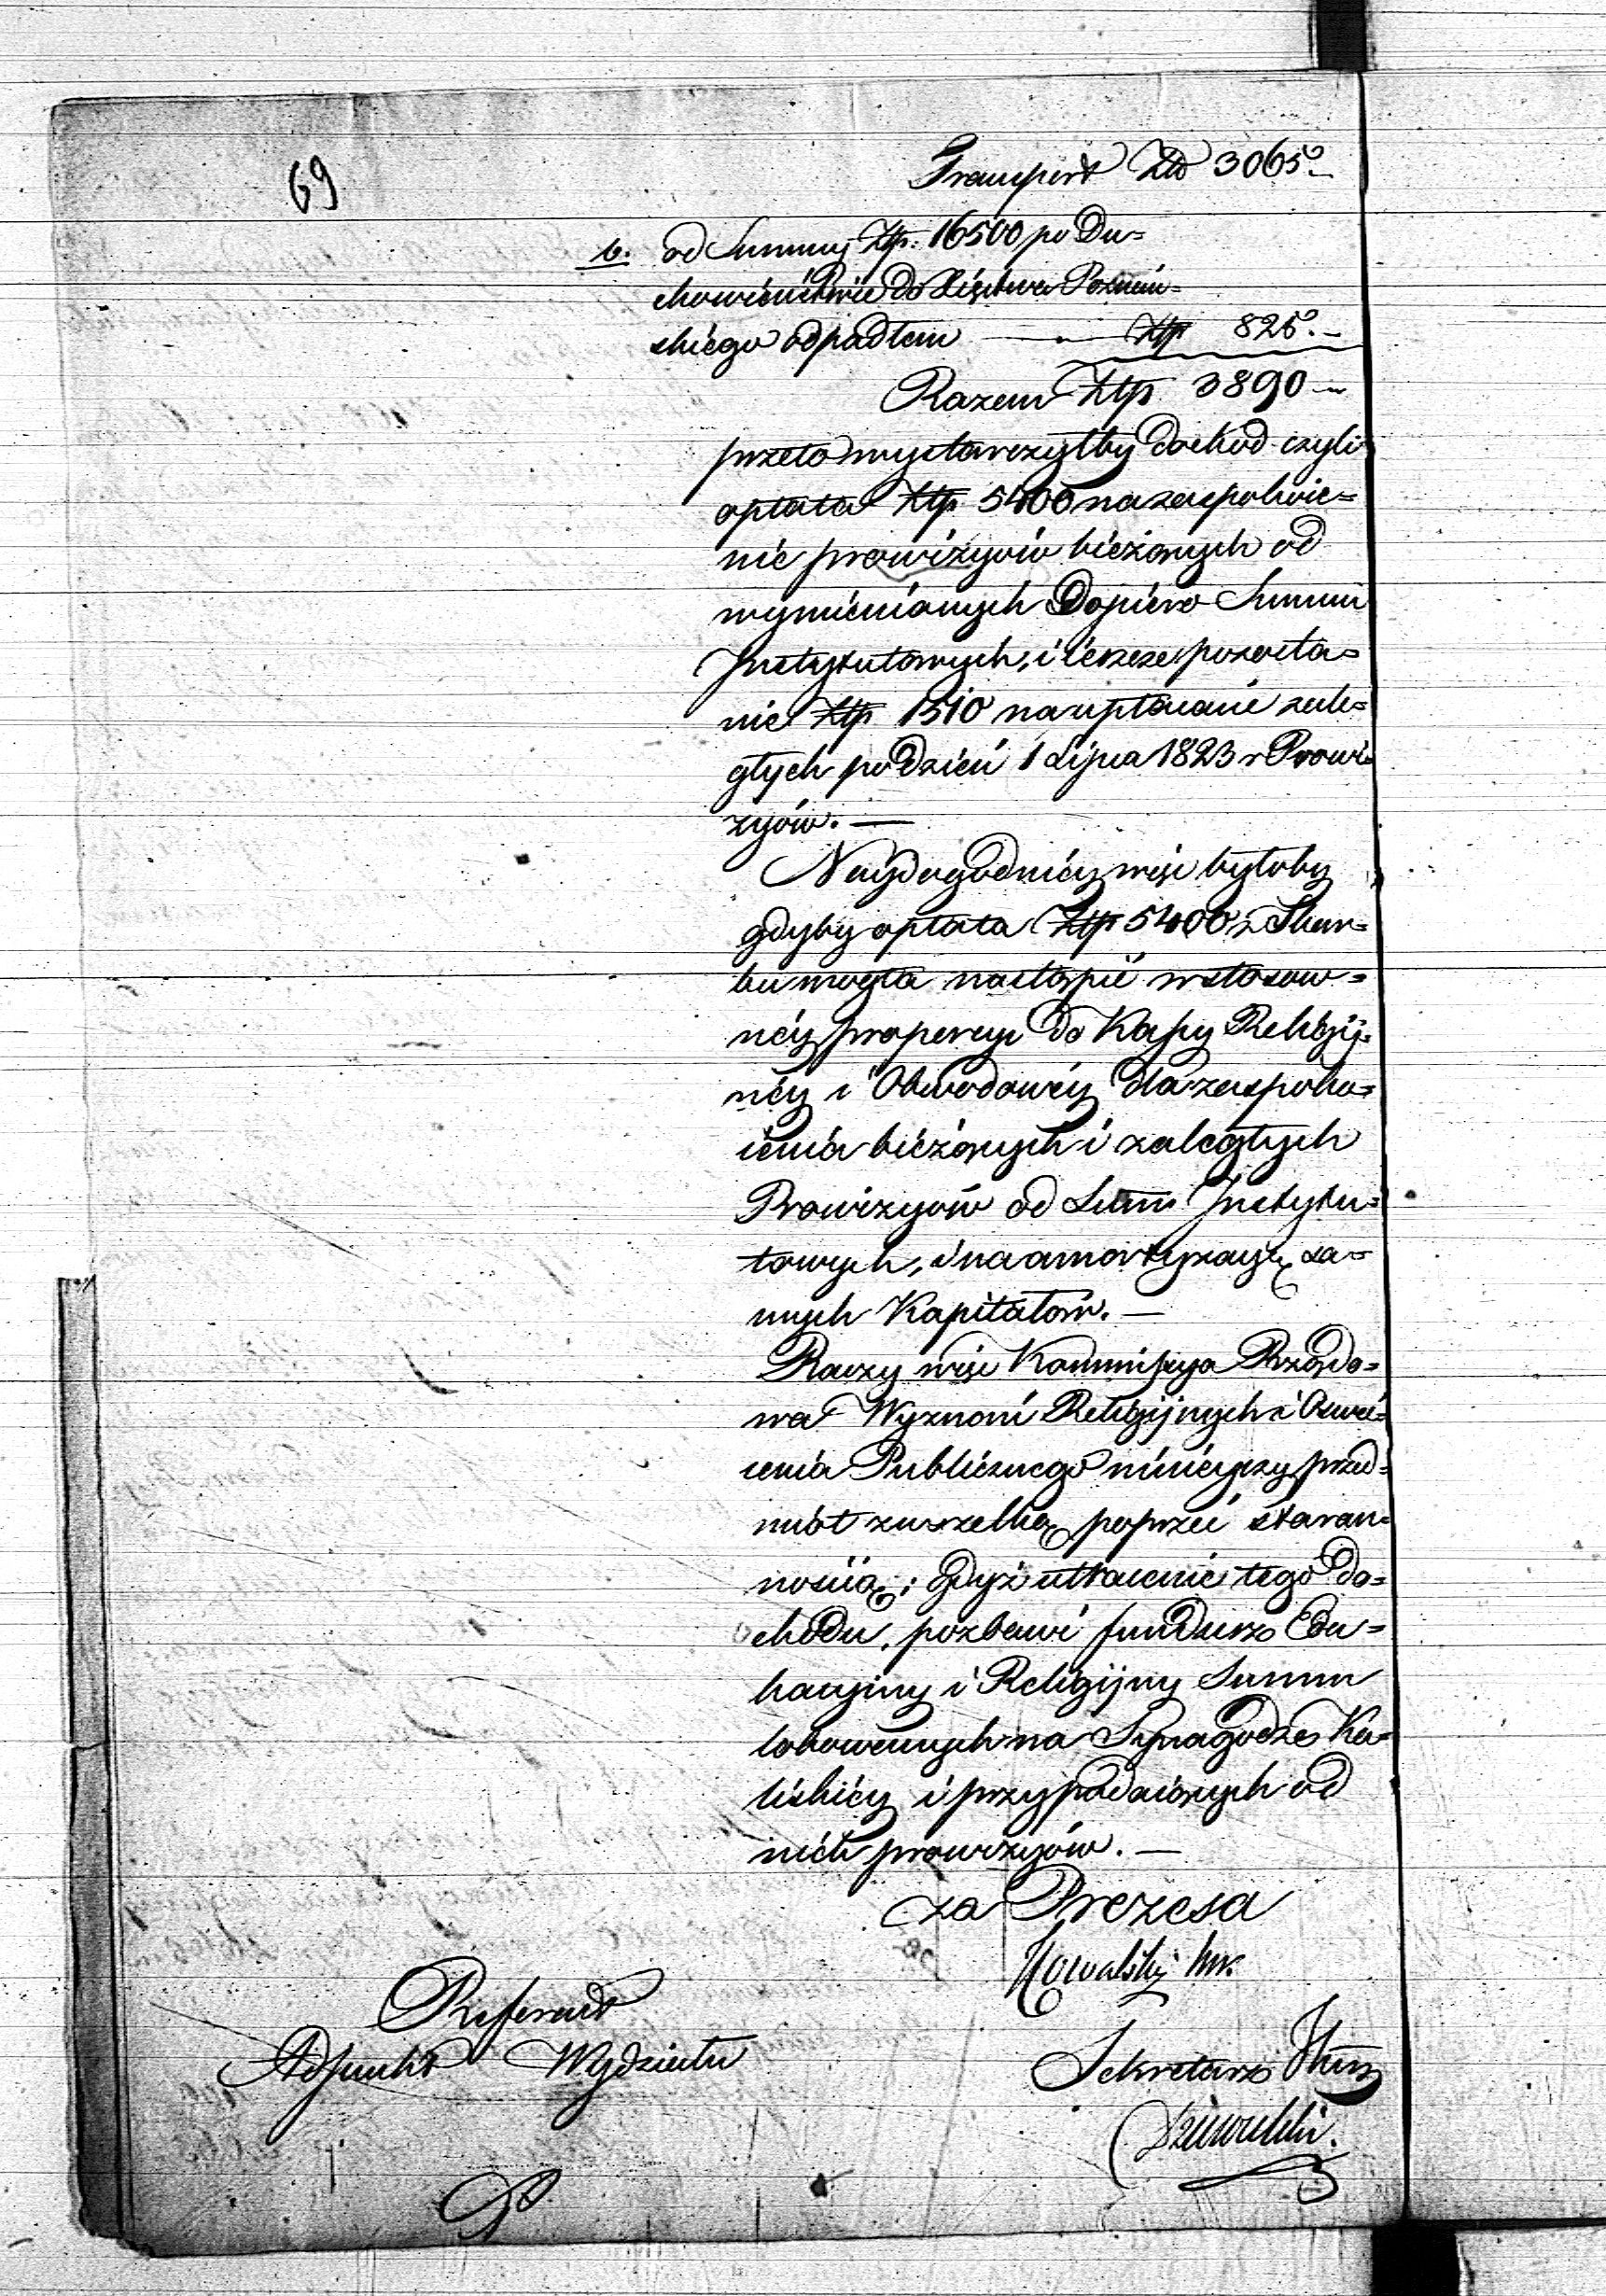 69
Transport Złp 3065.–
b. od Summy Złp: 16500 po Du=
chowieństwie do Xięstwa Poznań=
skiego odpadłem — " — Złp 825.–
Razem Złp 3890 –
przeto wystarczyłby dochód czyli
opłata Złp 5400 na zaspokoie=
nie prowizyów bieżących od
wymienionych dopiero Summ
Instytutowych, i ieszcze pozosta=
nie Złp 1510 na upłacanie zale=
głych po dzień 1 Lipca 1823 r Prowi=
zyów. —
Naydogodniey więc byłoby
gdyby opłata Złp 5400 z Skar=
bu mogła nastąpić w stosow=
ney proporcyi do Kassy Religiy=
ney i Obwodowey dla zaspoko=
ienia bieżących i zaległych
Prowizyów od Summ Instytu=
towych, i na amortyzacyę sa=
mych Kapitałów. —
Raczy więc Kommissya Rządo=
wa Wyznań Religijnych i Oświe=
cenia Publicznego ninieyszy przed=
miot z wszelką poprzeć staran=
nością; gdyż utracenie tego do=
chodu, pozbawi fundusz Edu=
kacyiny i Religijny Summ
lokowanych na Synagodze Ka=
liskiey i przypadaiących od
nich prowizyów. —
za Prezesa
Kowalski
Referent
Adjunkt Wydziału
Sekretarz